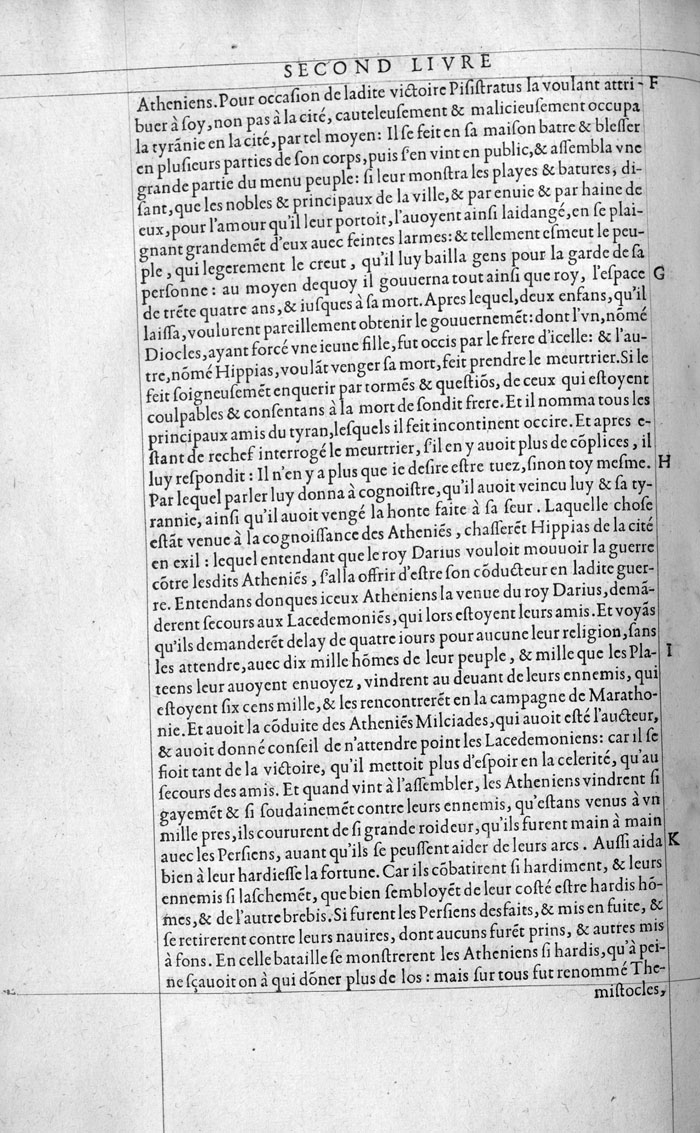 SECOND LIVRE
Atheniens. Pour occaſion de ladite victoire Piſiſtratus la voulant attri- F
buer à ſoy, non pas à la cité, cauteleuſement & malicieuſement occupa
la tyrãnie en la cité, par tel moyen: Il ſe feit en ſa maiſon batre & bleſſer
en pluſieurs parties de ſon corps, puis ſ'en vint en public, & aſſembla vne
grande partie du menu peuple: ſi leur monſtra les playes & batures, di-
ſant, que les nobles & principaux de la ville, & par enuie & par haine de
eux, pour l'amour qu'il leur portoit, l'auoyent ainſi laidangé, en ſe plai-
gnant grandemẽt d'eux auec feintes larmes: & tellement eſmeut le peu-
ple, qui legerement le creut, qu'il luy bailla gens pour la garde de ſa
perſonne: au moyen dequoy il gouuerna tout ainſi que roy, l'eſpace G
de trẽte quatre ans, & iuſques à ſa mort. Apres lequel, deux enfans, qu'il
laiſſa, voulurent pareillement obtenir le gouuernemẽt: dont l'vn, nõmé
Diocles, ayant forcé vne ieune fille, fut occis par le frere d'icelle: & l'au-
tre, nõmé Hippias, voulãt venger ſa mort, feit prendre le meurtrier. Si le
feit ſoigneuſemẽt enquerir par tormẽs & queſtiõs, de ceux qui eſtoyent
coulpables & conſentans à la mort de ſondit frere. Et il nomma tous les
principaux amis du tyran, leſquels il feit incontinent occire. Et apres e-
ſtant de rechef interrogé le meurtrier, ſ'il en y auoit plus de cõplices, il
luy reſpondit: Il n'en y a plus que ie deſire eſtre tuez, ſinon toy meſme. H
Par lequel parler luy donna à cognoiſtre, qu'il auoit veincu luy & ſa ty-
rannie, ainſi qu'il auoit vengé la honte faite à ſa ſeur. Laquelle choſe
eſtãt venue à la cognoiſſance des Atheniẽs, chaſſerẽt Hippias de la cité
en exil: lequel entendant que le roy Darius vouloit mouuoir la guerre
cõtre leſdits Atheniẽs, ſ'alla offrir d'eſtre ſon cõducteur en ladite guer-
re. Entendans donques iceux Atheniens la venue du roy Darius, demã-
derent ſecours aux Lacedemoniẽs, qui lors eſtoyent leurs amis. Et voyãs
qu'ils demanderẽt delay de quatre iours pour aucune leur religion, ſans
les attendre, auec dix mille hõmes de leur peuple, & mille que les Pla- I
teens leur auoyent enuoyez, vindrent au deuant de leurs ennemis, qui
eſtoyent ſix cens mille, & les rencontrerẽt en la campagne de Maratho-
nie. Et auoit la cõduite des Atheniẽs Milciades, qui auoit eſté l'aucteur,
& auoit donné conſeil de n'attendre point les Lacedemoniens: car il ſe
fioit tant de la victoire, qu'il mettoit plus d'eſpoir en la celerité, qu'au
ſecours des amis. Et quand vint à l'aſſembler, les Atheniens vindrent ſi
gayemẽt & ſi ſoudainemẽt contre leurs ennemis, qu'eſtans venus à vn
mille pres, ils coururent de ſi grande roideur, qu'ils furent main à main
auec les Perſiens, auant qu'ils ſe peuſſent aider de leurs arcs. Auſſi aida K
bien à leur hardieſſe la fortune. Car ils cõbatirent ſi hardiment, & leurs
ennemis ſi laſchemẽt, que bien ſembloyẽt de leur coſté eſtre hardis hõ-
mes, & de l'autre brebis. Si furent les Perſiens desfaits, & mis en fuite, &
ſe retirerent contre leurs nauires, dont aucuns furẽt prins, & autres mis
à fons. En celle bataille ſe monſtrerent les Atheniens ſi hardis, qu'à pei-
ne ſçauoit on à qui dõner plus de los: mais ſur tous fut renommé The-
miſtocles,